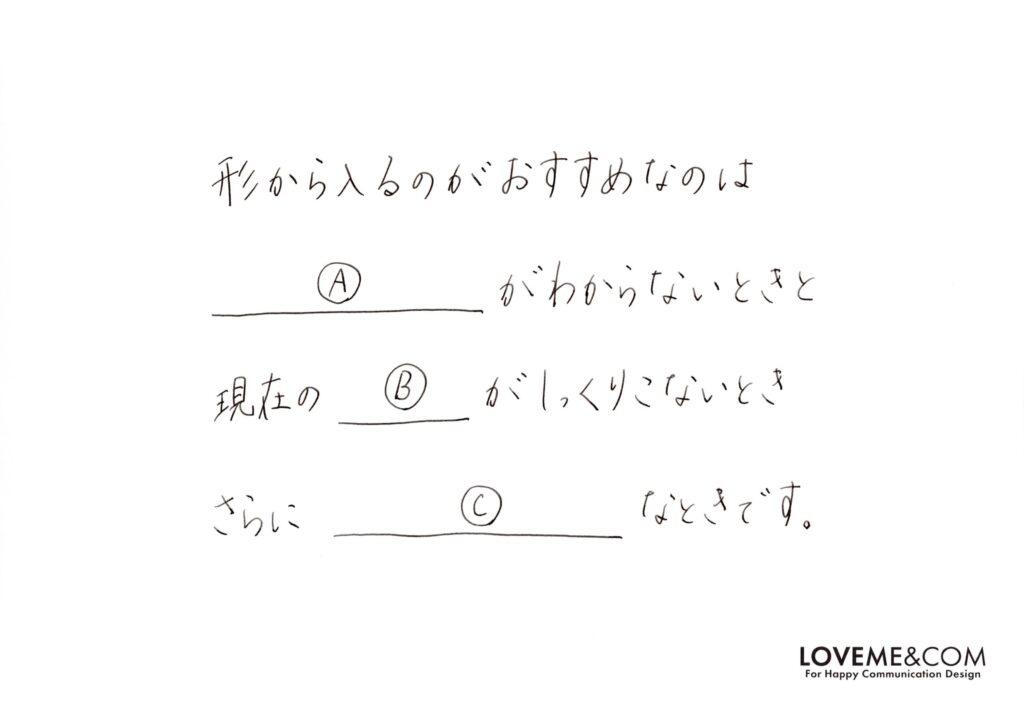 形から入るのがおすすめなのは
Ⓐ がわからないときと
現在の Ⓑ がしっくりこないとき
さらに Ⓒ なときです。
LOVEME&COM
For Happy Communication Design